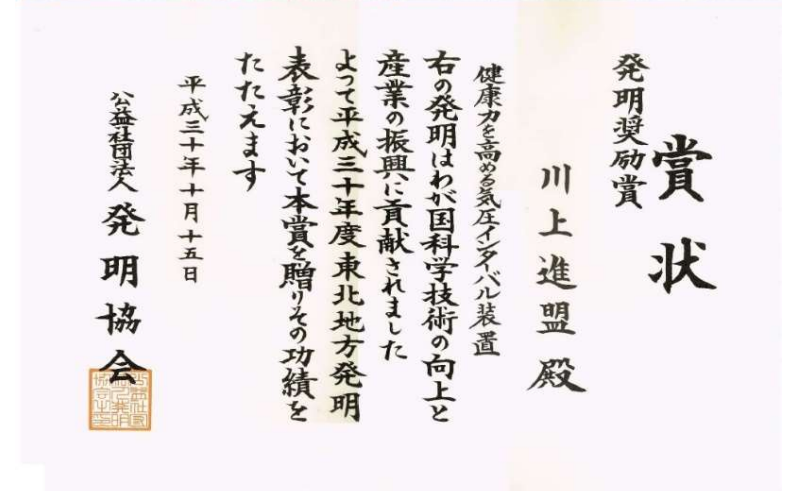 賞状
発明奨励賞
川上進盟殿
健康力を高める気圧インターバル装置
右の発明はわが国科学技術の向上と
産業の振興に貢献されました
よって平成三十年度東北地方発明
表彰において本賞を贈りその功績を
たたえます
平成三十年十月十五日
公益社団法人 発明協会